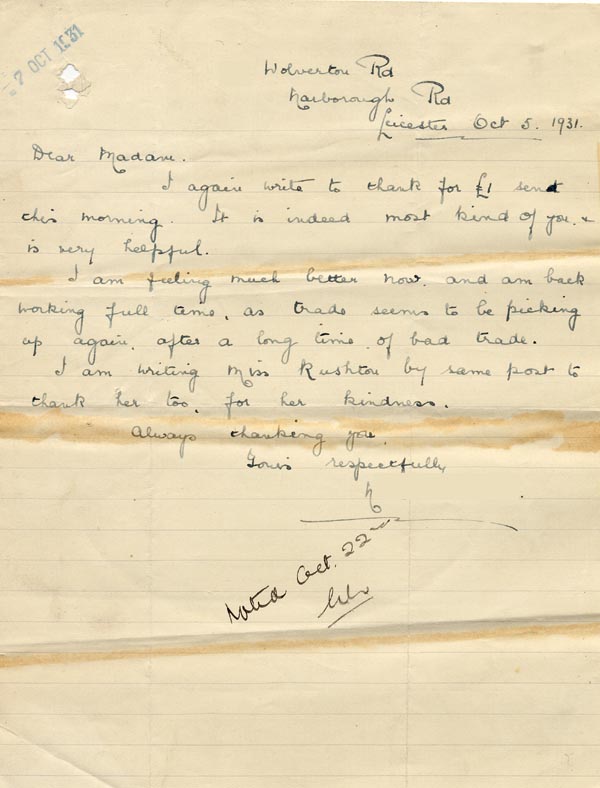 7 OCT 1931
Wolverton Rd
Narborough Rd
Leicester Oct 5. 1931.
Dear Madam.
I again write to thank for £1 send
this morning. It is indeed most kind of you. &
is very helpful.
I am feeling much better now. and am back
working full time, as trade seems to be picking
up again, after a long time of bad trade.
I am writing Miss Rushton by same post to
thank her too, for her kindness.
Always thanking you.
Yours respectfully
N
Noted Oct. 22nd